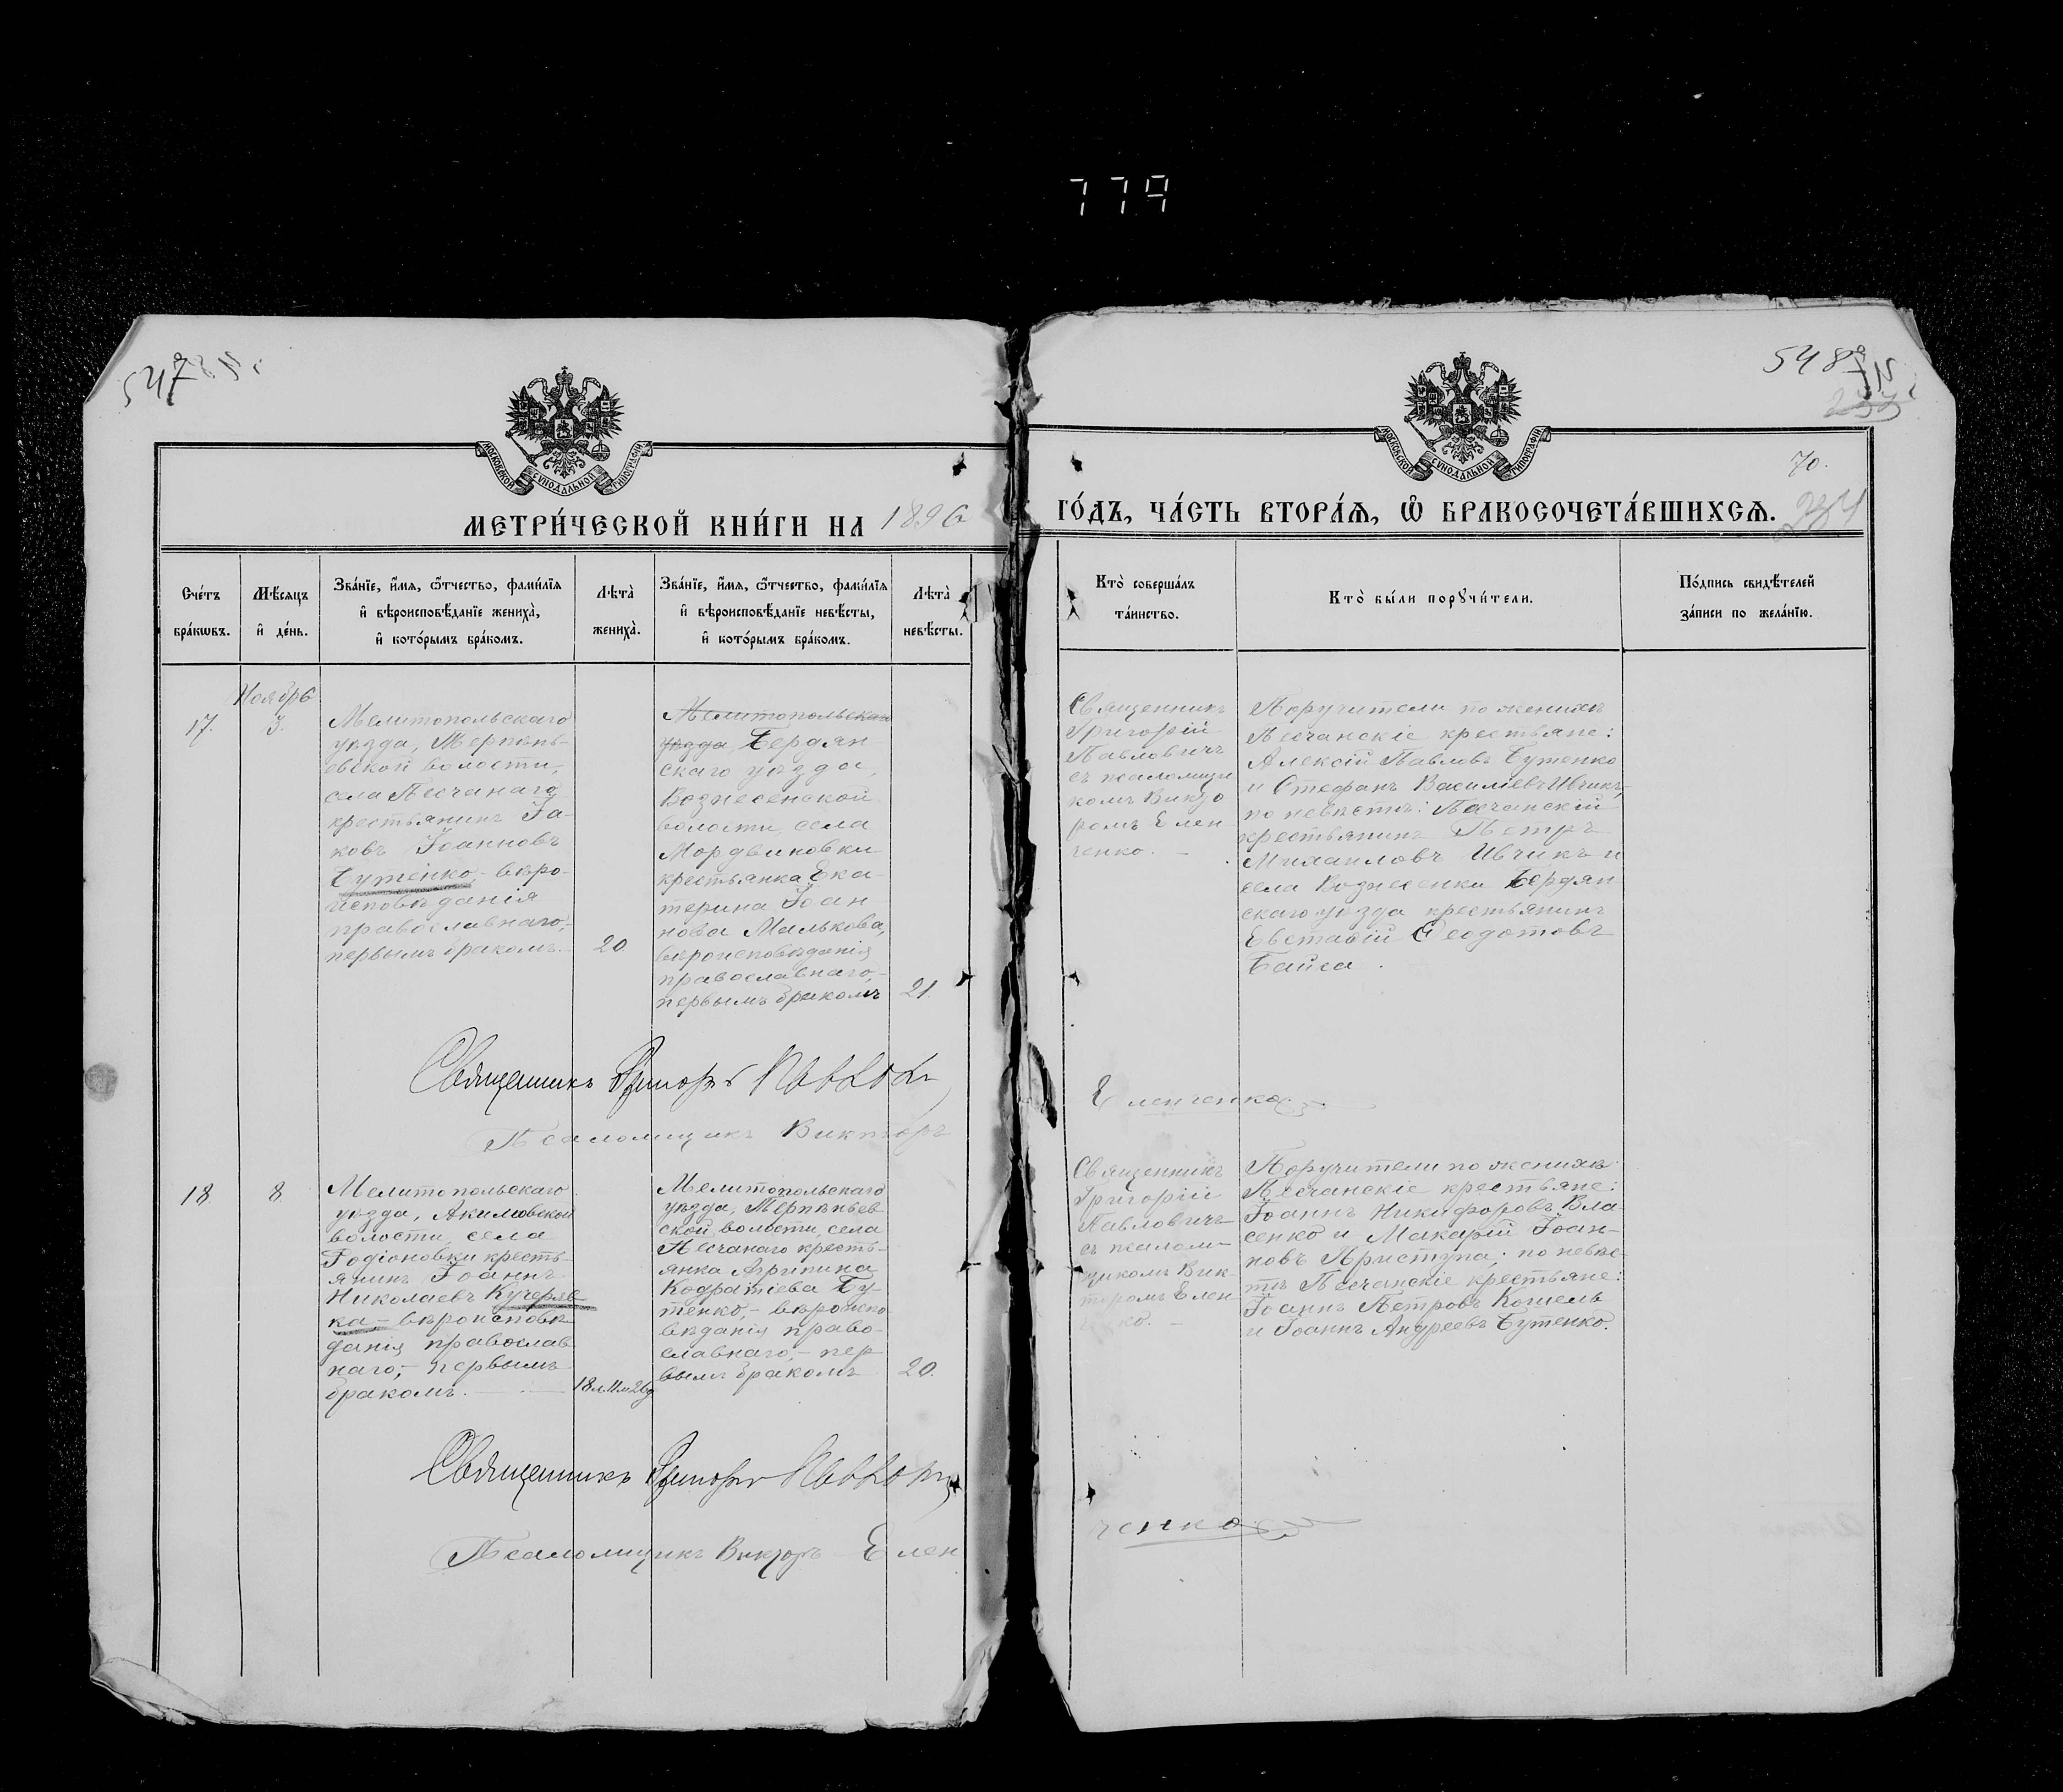 779
547
548
70.
МОСКОВСКОЙ СѴНОДАЛЬНОЙ ТИПОГРАФІИ
МОСКОВСКОЙ СѴНОДАЛЬНОЙ ТИПОГРАФІИ
МЕТРИ́ЧЕСКОЙ КНИ́ГИ НА 1896
ГО́ДЪ, ЧА́СТЬ ВТОРА́Ѧ, Ѽ БРАКОСОЧЕТА́ВШИХСѦ.
Сче́тъ бра́кѡвъ.
Мѣ́сяцъ и҆ де́нь.
Зва́нїе, и҆́мя, ѻ҆́тчество, фами́лїя
и҆ вѣроисповѣ́данїе жениха̀,
и҆ кото́рымъ бра́комъ.
Лѣта̀ жениха̀.
Зва́нїе, и҆́мя, ѻ҆́тчество, фами́лїя
и҆ вѣроисповѣ́данїе невѣ́сты,
и҆ кото́рымъ бра́комъ.
Лѣта̀ невѣ́сты.
Кто̀ соверша́лъ
та́инство.
Кто̀ бы́ли порꙋчи́тели.
По́дпись свидѣ́телей
за́писи по жела́нїю.
17.
Ноябрь
3.
Мелитопольскаго
уѣзда, Терпѣнь-
евской волости,
села Песчанаго
крестьянинъ Іа-
ковъ Іоанновъ
Бутенко,- вѣро-
исповѣданія
православнаго,
первымъ бракомъ.
20
Мелитопольскаго
уѣзда Бердян
скаго уѣзда,
Вознесенской
волости, села
Мордвиновки
крестьянка Ека-
терина Іоан
нова Малькова,
вѣроисповѣданія
православнаго,
первымъ бракомъ
21.
Священникъ
Григорій
Павловичъ
съ псаломщи
комъ Викто
ромъ Елен
ченко.
Поручители по женихѣ
Песчанскіе крестьяне:
Алексій Павловъ Бутенко
и Стефанъ Василіевъ Ивчикъ,
по невѣстѣ: Песчанскій
крестьянинъ Петръ
Михаиловъ Ивчикъ и
села Вознесенки Бердян
скаго уѣзда крестьянинъ
Евстафій Ѳеодотовъ
Байса.
Священникъ Григорій Павлович
Псаломщикъ Викторъ
Еленченко
18
8
Мелитопольскаго
уѣзда, Акимовской
волости, села
Родіоновки кресть-
янинъ Іоаннъ
Николаевъ Кучеряв
ка,- вѣроисповѣ
данія православ
наго,- первымъ
бракомъ.
18 л. 11 м. 26 д
Мелитопольскаго
уѣзда, Терпѣньев
ской волости, села
Песчанаго кресть-
янка Агрипина
Кодратіева Бу-
тенко,- вѣроиспо
вѣданія право-
славнаго,- пер
вымъ бракомъ
20.
Священникъ
Григорій
Павловичъ
съ псалом
щикомъ Вик-
торомъ Елен
ченко.
Поручители по женихѣ
Песчанскіе крестьяне:
Іоаннъ Никифоровъ Вла
сенко и Макарій Іоан-
новъ Приступа; по невѣс-
тѣ Песчанскіе крестьяне:
Іоаннъ Петровъ Кошель
и Іоаннъ Андреевъ Бутенко.
Священникъ Григорій Павлович
Псаломщикъ Викторъ Елен
ченко